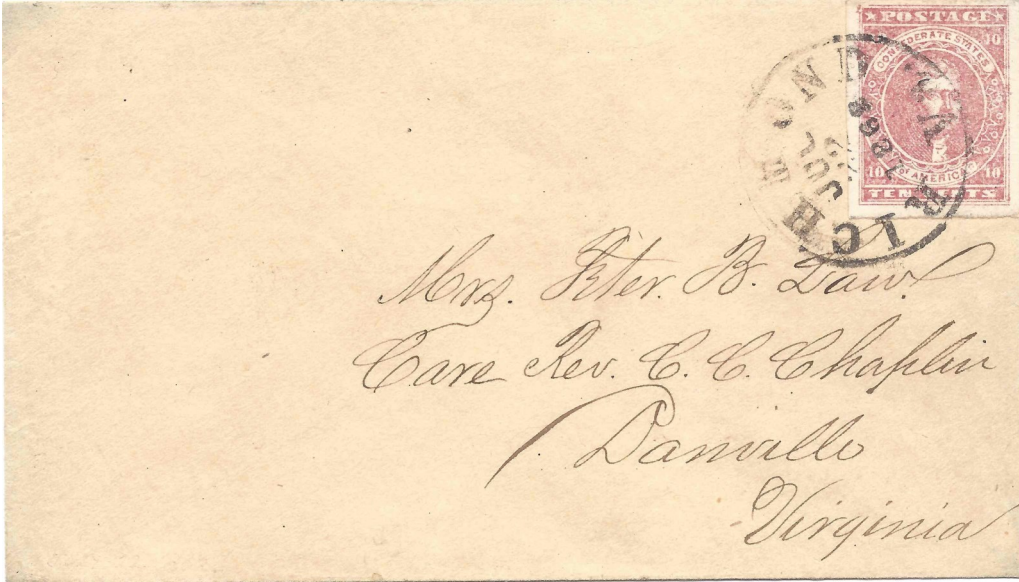 ★POSTAGE★
10 10
CONFEDERATE STATES
OF AMERICA
10 10
TEN CENTS
RICHMOND VA.
JUL
Mrs. Peter. B. Law.
Care Rev. C. C. Chaplin
Danville
Virginia